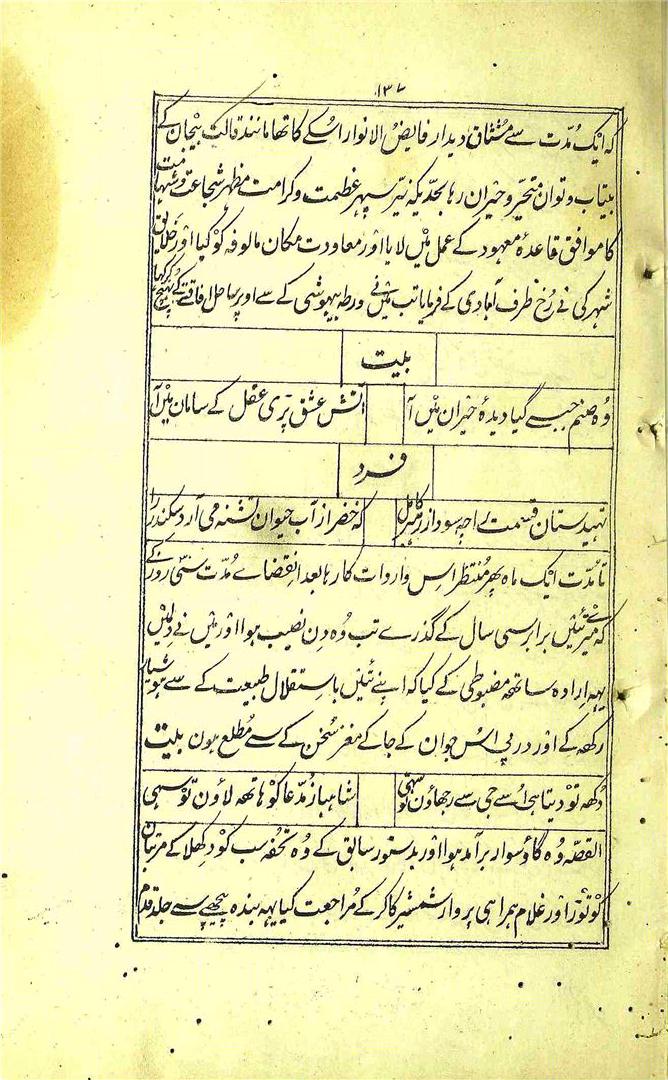 ۱۳۷
کہ ایک مُدّت سے مشتاق دیدار فایض الانوار اُسکے کا تھا مانند قالب بیجان کے
بیتاب و توان متحیّر و حیران رہا بجدّیکہ نیّر سپہر عظمت و کرامت مظہر شجاعت و شہامت
کا موافق قاعدۂ معہود کے عمل میں لایا اور معاودت مکان مالوفہ کو کیا اور خلایق
شہر کی نے رُخ طرف آبادی کے فرمایا تب میں نے ورطۂ بیہوشی کے سے اوپر ساحل افاقت کے پہنچ کر کہا
بیت
وُہ صنم جب سے گیا دیدۂ حیران میں آ
آتش عشق پڑی عقل کے سامان میں آ
فرد
تہیدستان قسمت را چہ سود از رہبر کامل
کہ خضر از آب حیوان تشنہ می آرد سکندر را
تا مُدّت ایک ماہ پھر مُنتظر اِس واردات کا رہا بعد اِنقضاے مُدّت سی روز کے
کہ میرے تئیں برابر سی سال کے گذرے تب وُہ دِن نصیب ہوا اور میں نے دِلمیں
یہہ اِرادہ ساتھہ مضبوطی کے کیا کہ اپنے تئیں باِستقلال طبیعت کے سے ہوشیار
رکھہ کے اور درپی اُس جوان کے جا کے مغز سُخن کے سے مُطلع ہون بیت
دُکھہ تو دیتا ہی اُسے جی سے رجھاؤن تو سہی
شاہباز مُدّعا کو ہاتھہ لاؤن تو سہی
القصّہ وُہ گاؤ سوار برآمد ہوا اور بدستور سابق کے وُہ تحفہ سب کو دِکھلا کے مرتبان
کو توڑ اور غلام ہمراہی پر وار شمشیر کا کر کے مُراجعت کیا یہہ بندہ پیچھے سے جلد قدم